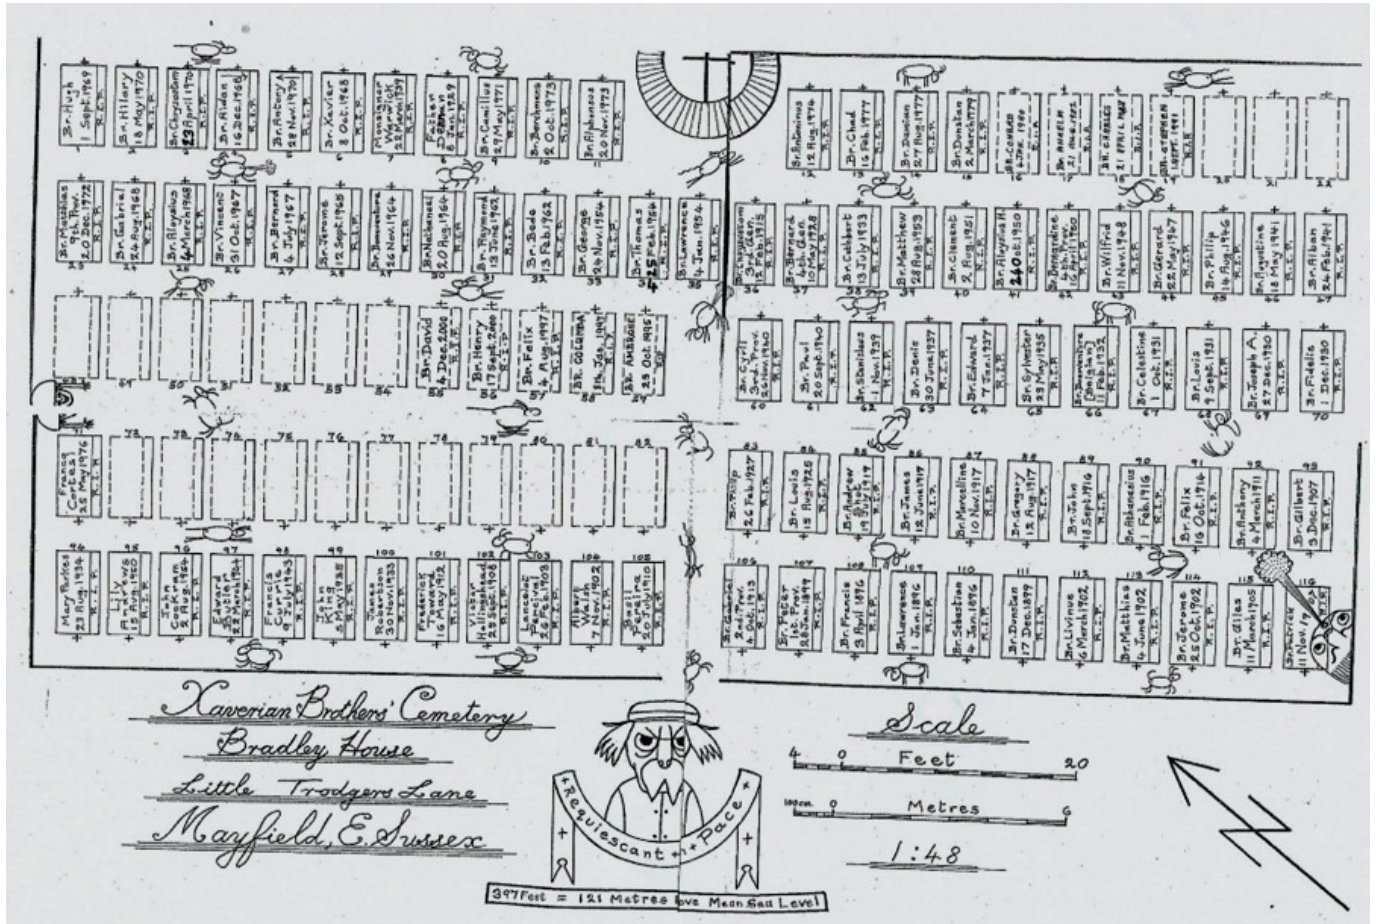 Br. Hugh
1 Sept. 1969
R.I.P.
Br. Hillary
18 May 1970
R.I.P.
Br. Chrysostom
23 April 1970
R.I.P.
Br. Aidan
16 Dec. 1968
R.I.P.
5
Br. Antony A
28 Nov. 1970
R.I.P.
6
Br. Xavier
8 Oct. 1968
R.I.P.
7
Monsignor
Warwick
22 March 1939
R.I.P.
8
Father
8 Jan. 1929
R.I.P.
9
Br. Camillus
29 May 1971
R.I.P.
10
Br. Berchmans
2 Oct. 1973
R.I.P.
11
Br. Alphonsus
20 Nov. 1973
R.I.P.
12
Br. Antoninus
12 Aug. 1976
R.I.P.
13
Br. Chad
16 Feb. 1977
R.I.P.
14
Br. Damian
27 Aug. 1977
R.I.P.
15
Br. Dunstan
2 March 1979
R.I.P.
16
BR. CONRAD
R.I.P.
17
Br. ANSELM
R.I.P.
18
BR. CHARLES
R.I.P.
19
BR. STEPHEN
1 SEPT. 1991
R.I.P.
20
21
22
23
Br. Matthias
9th. Prov.
20 Dec. 1972
R.I.P.
24
Br. Gabriel
24 Aug. 1968
R.I.P.
25
Br. Aloysius
4 March 1968
R.I.P.
26
Br. Vincent
31 Oct. 1967
R.I.P.
27
Br. Bernard
4 July 1967
R.I.P.
28
Br. Jerome
12 Sept. 1965
R.I.P.
29
Br. Bonaventure
26 Nov. 1964
R.I.P.
Br. Nathaneal
20 Aug. 1964
R.I.P.
31
Br. Raymond
13 June 1962
R.I.P.
32
Br. Bede
13 Feb. 1962
R.I.P.
33
Br. George
24 Nov. 1954
R.I.P.
34
Br. Thomas
25 Feb. 1954
R.I.P.
35
Br. Lawrence
4 Jan. 1954
R.I.P.
36
Br. Chrysostom
3rd. Gen.
12 Feb. 1915
R.I.P.
37
Br. Bernard
4th. Gen.
10 May 1928
R.I.P.
38
Br. Cuthbert
13 July 1933
R.I.P.
39
Br. Matthew
28 Aug. 1953
R.I.P.
40
Br. Clement
2 Aug. 1951
R.I.P.
41
Br. Aloysius H.
24 Oct. 1950
R.I.P.
42
4th. Prov.
10 April 1950
R.I.P.
43
Br. Wilfrid
11 Nov. 1948
R.I.P.
44
Br. Gerard
22 May 1947
R.I.P.
45
Br. Philip
14 Aug. 1946
R.I.P.
46
Br. Augustine
18 May 1941
R.I.P.
47
Br. Alban
24 Feb. 1941
R.I.P.
49
50
51
52
53
54
55
Br. David
4 Dec. 2000
R.I.P.
56
Br. Henry
17 Sept. 2000
R.I.P.
57
Br. Felix
4 Aug. 1997
R.I.P.
58
BR. COLUMBA
Jan. 1997
R.I.P.
59
BR. AMBROSE
23 Oct. 1995
RIP
60
Br. Cyril
3rd. Prov.
26 Nov. 1940
R.I.P.
61
Br. Paul
20 Sept. 1940
R.I.P.
62
Br. Stanislaus
1 Nov. 1939
R.I.P.
63
Br. Denis
30 June 1937
R.I.P.
64
Br. Edward
7 Jan. 1937
R.I.P.
65
Br. Sylvester
23 May 1935
R.I.P.
66
Br. Bonaventure
[Daignam]
11 Feb. 1932
R.I.P.
67
Br. Celestine
1 Oct. 1931
R.I.P.
68
Br. Louis
9 Sept. 1931
R.I.P.
69
Br. Joseph A.
27 Dec. 1930
R.I.P.
70
Br. Fidelis
1 Dec. 1930
R.I.P.
Francq
Cortes
25 May 1976
R.I.P.
72
73
74
75
76
77
78
79
80
81
82
83
Br. Philip
26 Feb. 1927
R.I.P.
84
Br. Louis
15 Aug. 1925
R.I.P.
85
Br. Andrew
Short
19 July 1919
R.I.P.
86
Br. James
12 June 1917
R.I.P.
87
Br. Marcelline
10 Nov. 1917
R.I.P.
88
Br. Gregory
12 Aug. 1917
R.I.P.
89
Br. John
18 Sept. 1916
R.I.P.
90
Br. Athanasius
1 Feb. 1916
R.I.P.
91
Br. Felix
16 Oct. 1914
R.I.P.
92
Br. Anthony
4 March 1911
R.I.P.
93
Br. Gilbert
3 Dec. 1907
R.I.P.
94
Mary Parkes
23 Aug. 1934
R.I.P.
95
Lily
Andrews
15 Aug. 1950
R.I.P.
96
John
Cockram
2 Aug. 1954
R.I.P.
97
Edward
Butler
22 March 1944
R.I.P.
98
Francis
Currie
9 July 1943
R.I.P.
99
John
King
5 May 1935
R.I.P.
100
James
Robertson
30 Nov. 1933
R.I.P.
101
Frederick
Toward
16 May 1912
R.I.P.
102
Victor
Hollingshead
25 Sept. 1908
R.I.P.
103
Lancelot
Percival
26 Feb. 1903
R.I.P.
104
Albert
Walsh
7 Nov. 1902
R.I.P.
105
Basil
Pereira
20 July 1910
R.I.P.
106
Br. Gabriel
2nd. Prov.
4 Oct. 1913
R.I.P.
107
Br. Peter
1st. Prov.
28 Jan. 1899
R.I.P.
108
Br. Francis
3 April 1896
R.I.P.
109
Br. Lawrence
1 Jan. 1896
R.I.P.
110
Br. Sebastian
4 Jan. 1896
R.I.P.
111
Br. Dunstan
17 Dec. 1899
R.I.P.
112
Br. Livinus
6 March 1902
R.I.P.
113
Br. Matthias
4 June 1902
R.I.P.
114
Br. Jerome
25 Oct. 1902
R.I.P.
115
Br. Giles
11 March 1905
R.I.P.
116
Br. Patrick
11 Nov. 19
R.I.P.
Xaverian Brothers' Cemetery
Bradley House
Little Trodgers Lane
Mayfield, E. Sussex
+ Requiescant + in + Pace +
397 Feet = 121 Metres ove Mean Sea Level
Scale
4 0 Feet 20
100cm. 0 Metres 6
1:48